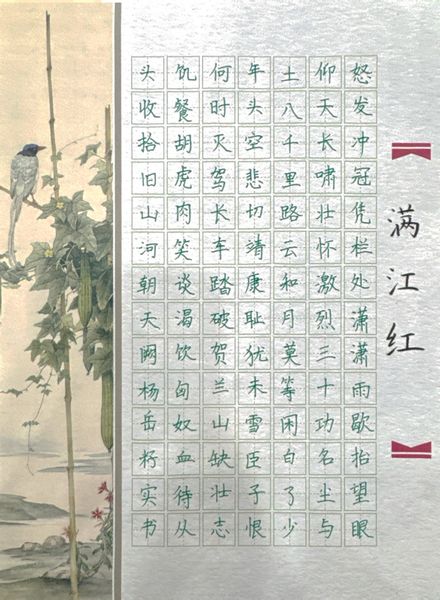 满江红
怒发冲冠凭栏处潇潇雨歇抬望眼
仰天长啸壮怀激烈三十功名尘与
土八千里路云和月莫等闲白了少
年头空悲切靖康耻犹未雪臣子恨
何时灭驾长车踏破贺兰山缺壮志
饥餐胡虏肉笑谈渴饮匈奴血待从
头收拾旧山河朝天阙杨岳籽实书